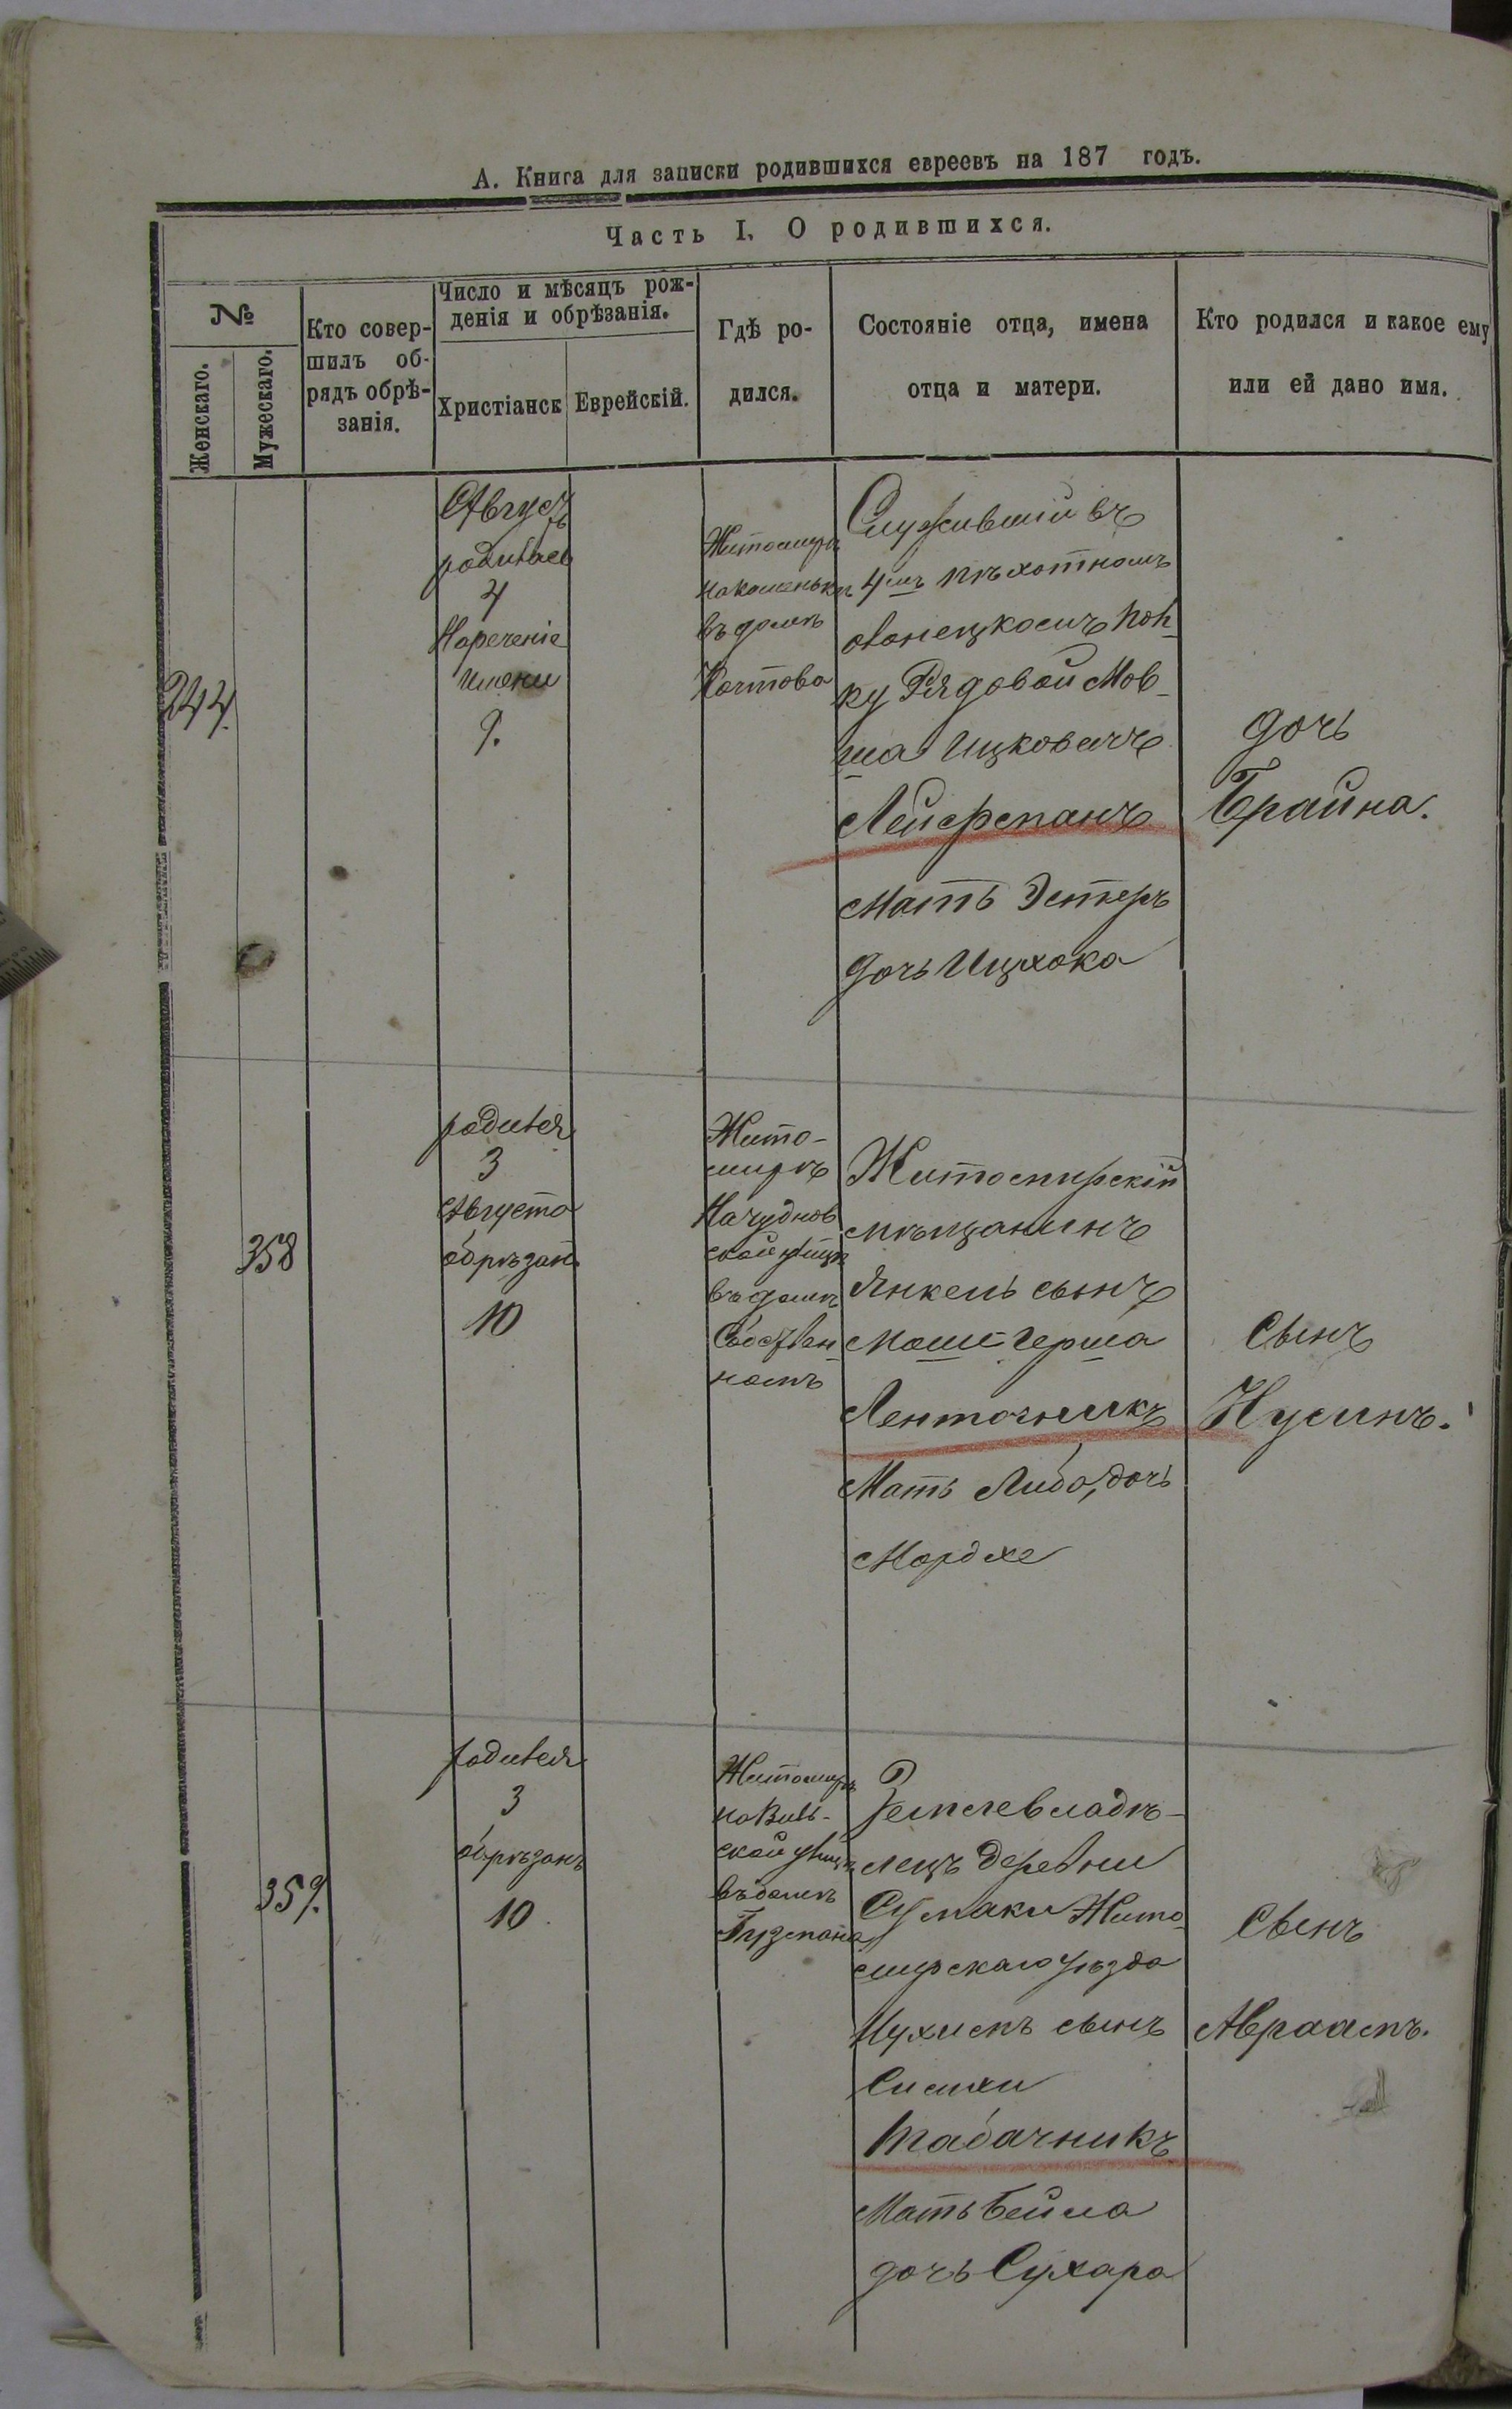 А. Книга для записки родившихся евреевъ на 187 годъ.
Часть I. О родившихся.
№
Женскаго.
Мужескаго.
Кто совер-
шилъ об-
рядъ обрѣ-
занія.
Число и мѣсяцъ рож-
денія и обрѣзанія.
Христіанск
Еврейскій.
Гдѣ ро-
дился.
Состояніе отца, имена
отца и матери.
Кто родился и какое ему
или ей дано имя.
244.
Августъ
родилась
4
Нареченіе
имени
9.
Житомиръ
въ домѣ
Служившій въ
4мъ пѣхотномъ
пол-
ку Рядовой Мов-
ша Ицковичъ
Лейферманъ
Мать Эстеръ
дочь Ицхока
дочь
Брайна.
358
родился
3
Августа
обрѣзан
10
Жито-
мирѣ
На чуднов
ской улицѣ
въ домѣ
Собствен-
номъ
Житомирскій
мѣщанинъ
Янкель сынъ
Моше Герша
Ленточникъ
Мать Либа, дочь
Мордхе
сынъ
Нусинъ.
359.
родился
3
обрѣзанъ
10.
Житомирѣ
на Виль-
ской улицѣ
въ домѣ
Гузмана
Землевладѣ-
лецъ деревни
Сумаки Жито-
мирскаго уѣзда
Нухимъ сынъ
Симхи
Табачникъ
Мать Бейла
дочь Сухара
Сынъ
Авраамъ.